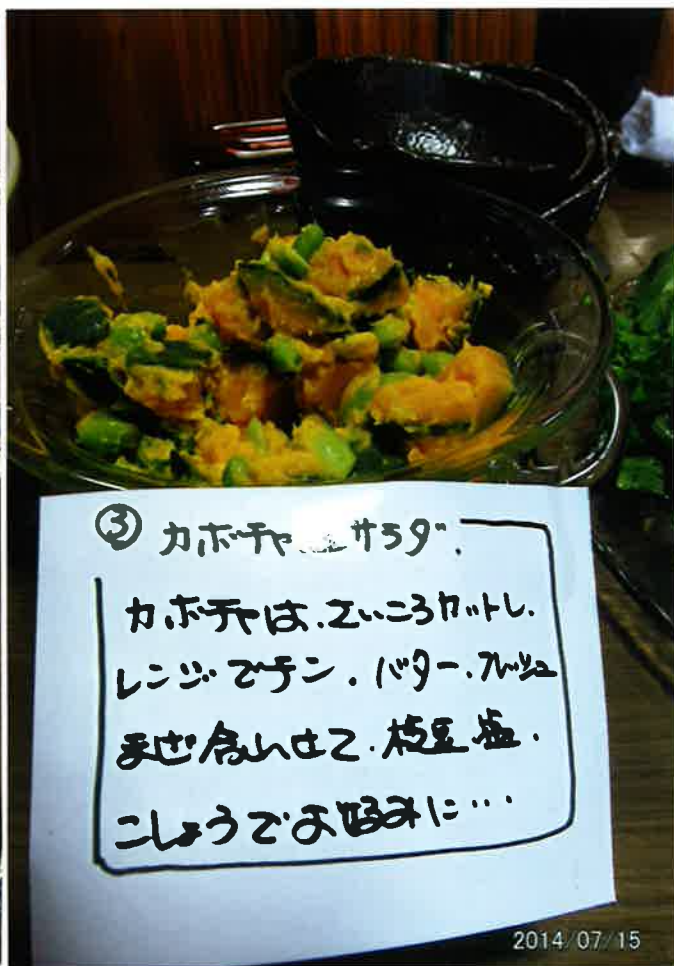 ③ カボチャ サラダ.
カボチャは、さいころカットし、
レンジでチン. バター、フレッシュ
まぜ合わせて、枝豆、塩、
こしょうでお好みに…
2014/07/15